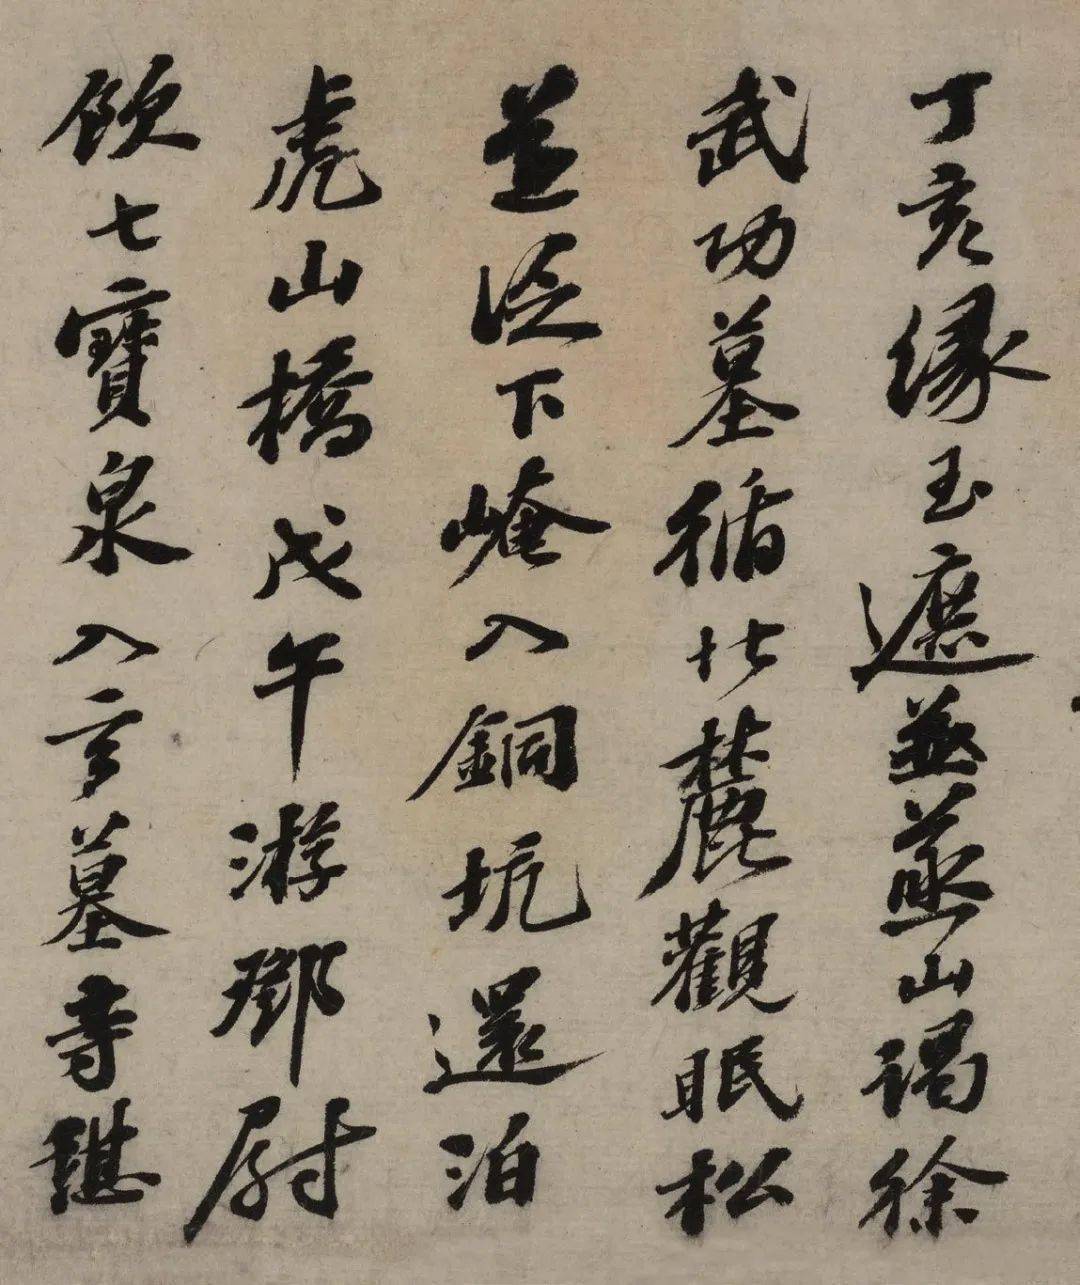 丁亥緣玉遮並蒸山謁徐
武功墓循北麓觀眠松
並下崦入銅坑還泊
虎山橋戊午游鄧尉
飲七寶泉入玄墓尋